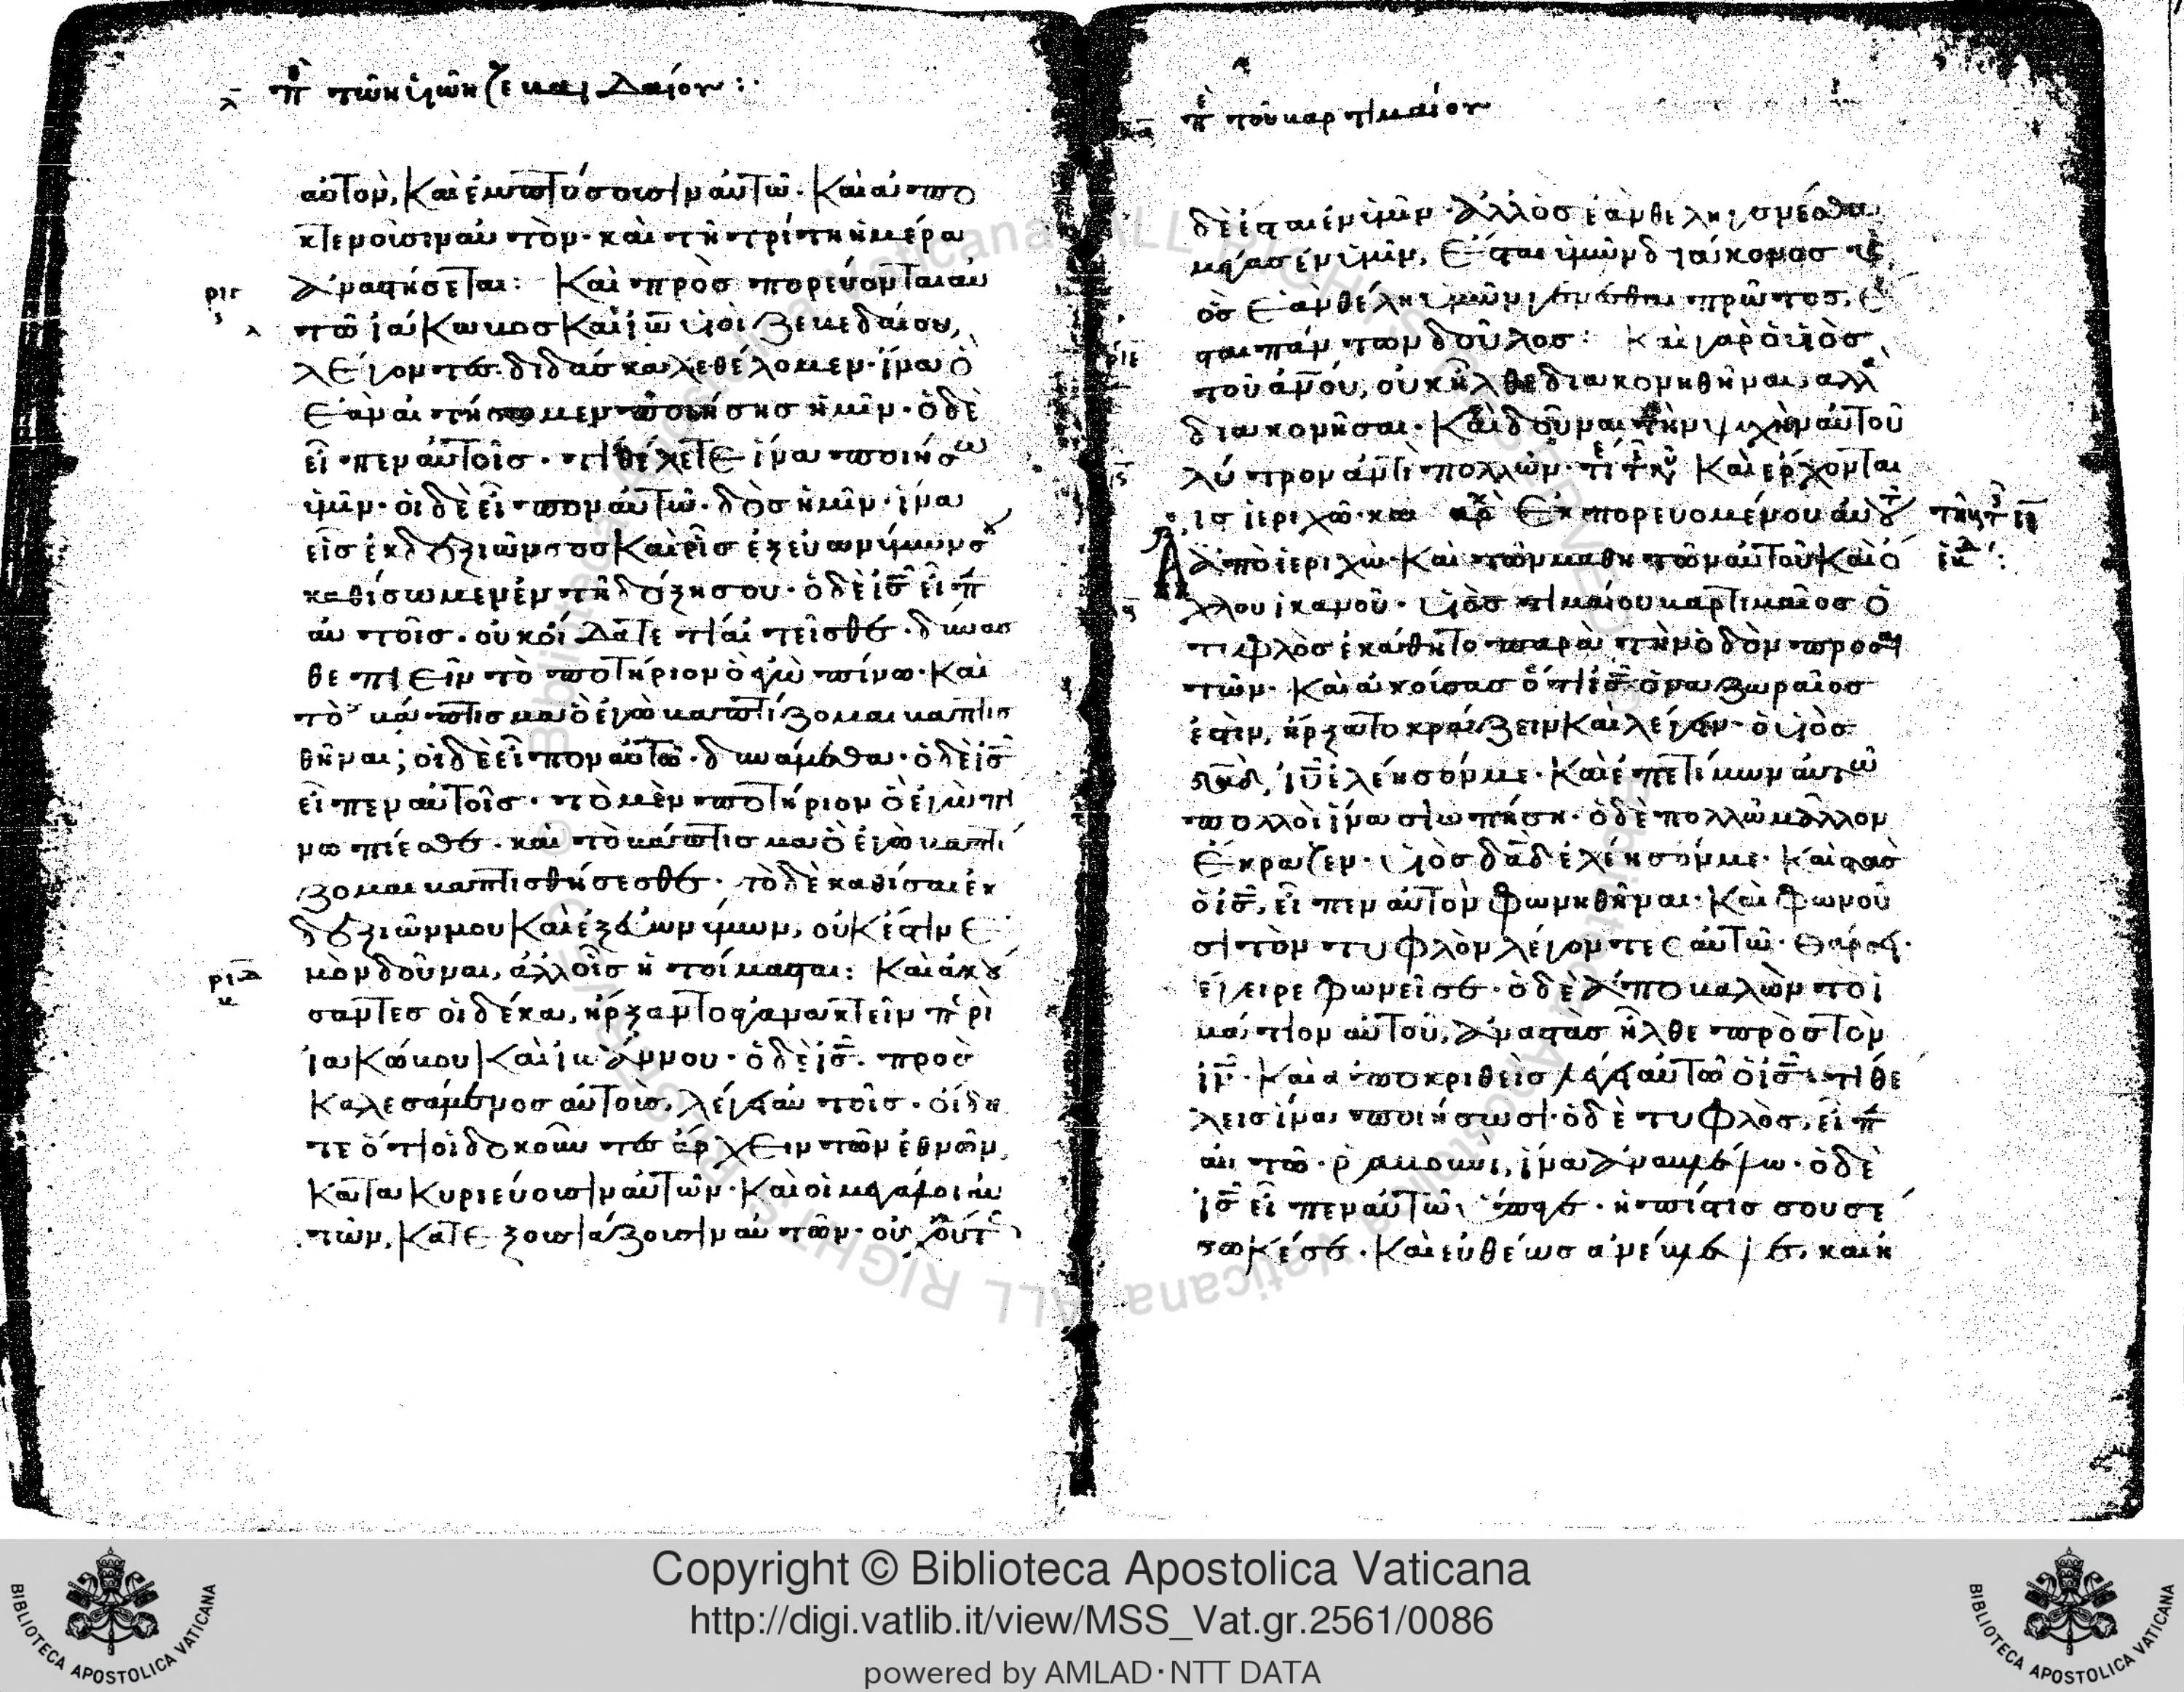 λ πε τῶν υἱῶν ζεβεδαίου:·
αὐτὸν, καὶ ἐμπτύσουσιν αὐτῶ· καὶ ἀπο
κτενοῦσιν αὐτὸν· καὶ τῆ τρίτη ἡμέρα
ριγ ἀναστήσεται: Καὶ προσπορεύονται αὐ
λ τῶ ἰάκωβος καὶ ἰω υἱοὶ ζεβεδαίου,
λέγοντες· διδάσκαλε θέλομεν· ἵνα ὃ
ἐὰν αἰτήσωμεν ποιήσης ἡμῖν· ὁ δὲ
εἶπεν αὐτοῖς· τί θέλετε ἵνα ποιήσω
ὑμῖν· οἱ δὲ εἶπον αὐτῶ· δὸς ἡμῖν· ἵνα
εἷς ἐκ δεξιῶν σου καὶ εἷς ἐξ εὐωνύμων σου
καθίσωμεν ἐν τῆ δόξη σου· ὁ δὲ ις εἶπ
αὐτοῖς· οὐκ οἴδατε τί αἰτεῖσθε· δύνασ
θε πιεῖν τὸ ποτήριον ὃ ἐγὼ πίνω· καὶ
τὸ βάπτισμα ὃ ἐγὼ βαπτίζομαι βαπτισ
θῆναι; οἱ δὲ εἶπον αὐτῶ· δυνάμεθα· ὁ δὲ ις
εἶπεν αὐτοῖς· τὸ μὲν ποτήριον ὃ ἐγὼ πί
νω πίεσθε· καὶ τὸ βάπτισμα ὃ ἐγὼ βαπτί
ζομαι βαπτισθήσεσθε· τὸ δὲ καθίσαι ἐκ
δεξιῶν μου καὶ ἐξ εὐωνύμων, οὐκ ἔστιν ἐ
ριδ μὸν δοῦναι, ἀλλ' οἷς ἡτοίμασται: Καὶ ἀκού
σαντες οἱ δέκα, ἤρξαντο ἀγανακτεῖν περὶ
ἰακώβου καὶ ἰωάννου· ὁ δὲ ις προσ
καλεσάμενος αὐτοὺς, λέγει αὐτοῖς· οἴδα
τε ὅτι οἱ δοκοῦντες ἄρχειν τῶν ἐθνῶν,
κατακυριεύουσιν αὐτῶν· καὶ οἱ μεγάλοι αὐ
τῶν, κατεξουσιάζουσιν αὐτῶν· οὐχ οὕτ
πε τοῦ βαρτιμαίου
δὲ ἔσται ἐν ὑμῖν· ἀλλ' ὃς ἐὰν θέλη γενέσθαι
μέγας ἐν ὑμῖν, ἔσται ὑμῶν διάκονος
ὃς ἐὰν θέλη ὑμῶν γενέσθαι πρῶτος, ἔ
σται πάντων δοῦλος: καὶ γὰρ ὁ υἱὸς
ριε τοῦ ανου, οὐκ ἦλθε διακονηθῆναι, ἀλλὰ
διακονῆσαι· καὶ δοῦναι τὴν ψυχὴν αὐτοῦ
λύτρον ἀντὶ πολλῶν· Καὶ ἔρχονται
εἰς ἰεριχῶ· καὶ ἐκπορευομένου αὐτοῦ
ἀπὸ ἰεριχὼ· καὶ τῶν μαθητῶν αὐτοῦ καὶ ὄ
χλου ἱκανοῦ· υἱὸς τιμαίου βαρτιμαῖος ὁ
τυφλὸς ἐκάθητο παρὰ τὴν ὁδὸν προσαι
τῶν· καὶ ἀκούσας ὅτι ις ὁ ναζωραῖος
ἐστὶν, ἤρξατο κράζειν καὶ λέγειν· ὁ υἱὸς
δαδ, ιυ ἐλέησόν με· καὶ ἐπετίμων αὐτῶ
πολλοὶ ἵνα σιωπήση· ὁ δὲ πολλῶ μᾶλλον
ἔκραζεν· υἱὸς δαδ ἐλέησόν με· καὶ στὰς
ὁ ις, εἶπεν αὐτὸν φωνηθῆναι· καὶ φωνοῦ
σι τὸν τυφλὸν λέγοντες αὐτῶ· θάρσει·
ἔγειρε φωνεῖ σε· ὁ δὲ ἀποβαλὼν τὸ ἱ
μάτιον αὐτοῦ, ἀναστὰς ἦλθε πρὸς τὸν
ιν· καὶ ἀποκριθεὶς λέγει αὐτῶ ὁ ις· τί θέ
λεις ἵνα ποιήσω σοι· ὁ δὲ τυφλὸς, εἶπ
αὐτῶ· ραβουνὶ, ἵνα ἀναβλέψω· ὁ δὲ
ις εἶπεν αὐτῶ· ὕπαγε· ἡ πίστις σου σέ
σωκέ σε· καὶ εὐθέως ἀνέβλεψε, καὶ ἠ
Copyright © Biblioteca Apostolica Vaticana
http://digi.vatlib.it/view/MSS_Vat.gr.2561/0086
powered by AMLAD·NTT DATA
BIBLIOTECA APOSTOLICA VATICANA
BIBLIOTECA APOSTOLICA VATICANA